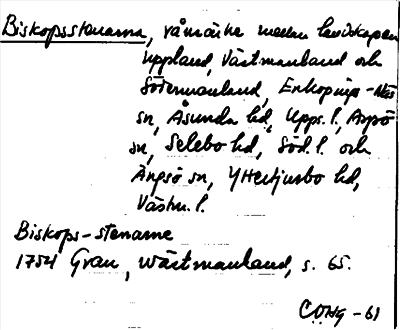 Biskopsstenarna, råmärke mellan landskapen
Uppland, Västmanland och
Södermanland, Enköpings-Näs
sn, Åsunda hd, Upps. l., Aspö
sn, Selebo hd, Söd. l. och
Ängsö sn, Yttertjurbo hd,
Västm. l.
Biskops-stenarne
1754 Grau, Wästmanland, s. 65.
COHg -61